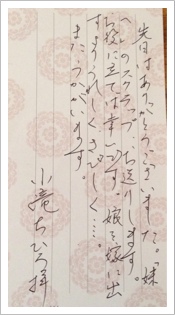 先日はありがとうございました。「妹
へ」のスクラップ…お送りします。
お役に立てば幸いです。娘を嫁に出
すようれしくさびしく…。
またうかがいます。
小竜ちひろ拝